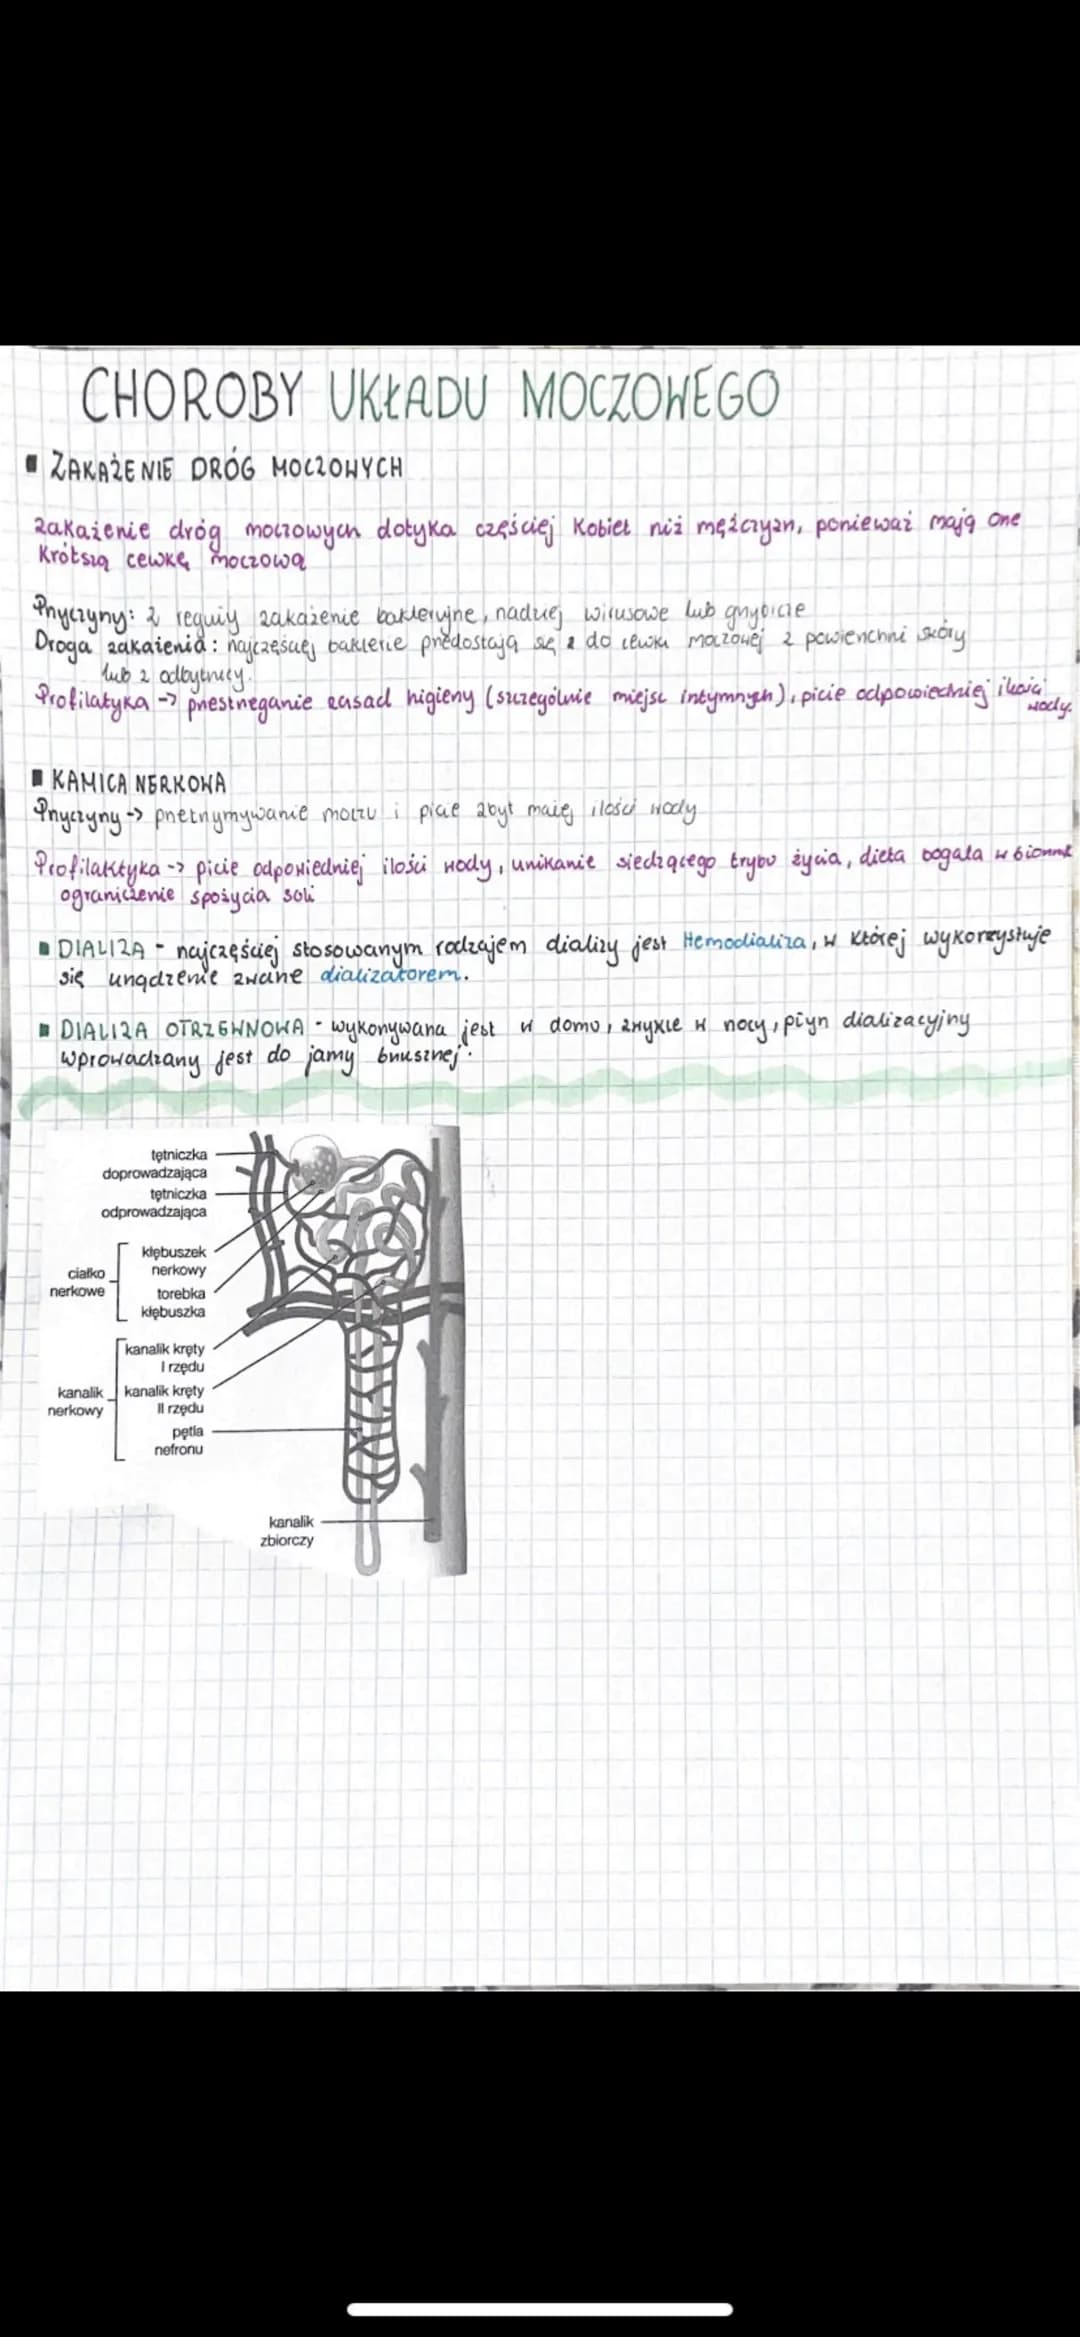 CHOROBY UKŁADU MOCZOWEGO
▪ ZAKAŻENIE DRÓG MOCZOWYCH
Zakażenie dróg moczowych dotyka częściej kobiet niż mężczyzn, ponieważ mają one
krótszą cewkę moczową
Przyczyny: z reguły zakażenie bakteryjne, rzadziej wirusowe lub grzybicze
Droga zakażenia: najczęściej bakterie przedostają się z do cewki moczowej z powierzchni skóry
lub z odbytnicy.
Profilatyka -> przestrzeganie zasad higieny (szczególnie miejsc intymnych), picie odpowiedniej ilości
wody.
▪ KAMICA NERKOWA
Przyczyny -> przetrzymywanie moczu i picie zbyt małej ilości wody
Profilaktyka -> picie odpowiedniej ilości wody, unikanie siedzącego trybu życia, dieta bogata w błonnik
ograniczenie spożycia soli
▪ DIALIZA - najczęściej stosowanym rodzajem dializy jest Hemodializa, w której wykorzystuje
się urządzenie zwane dializatorem.
▪ DIALIZA OTRZEWNOWA - wykonywana jest w domu, zwykle w nocy, płyn dializacyjny
wprowadzany jest do jamy brzusznej.
tętniczka
doprowadzająca
tętniczka
odprowadzająca
kłębuszek
nerkowy
ciałko
nerkowe
torebka
kłębuszka
kanalik kręty
I rzędu
kanalik
nerkowy
kanalik kręty
II rzędu
pętla
nefronu
kanalik
zbiorczy